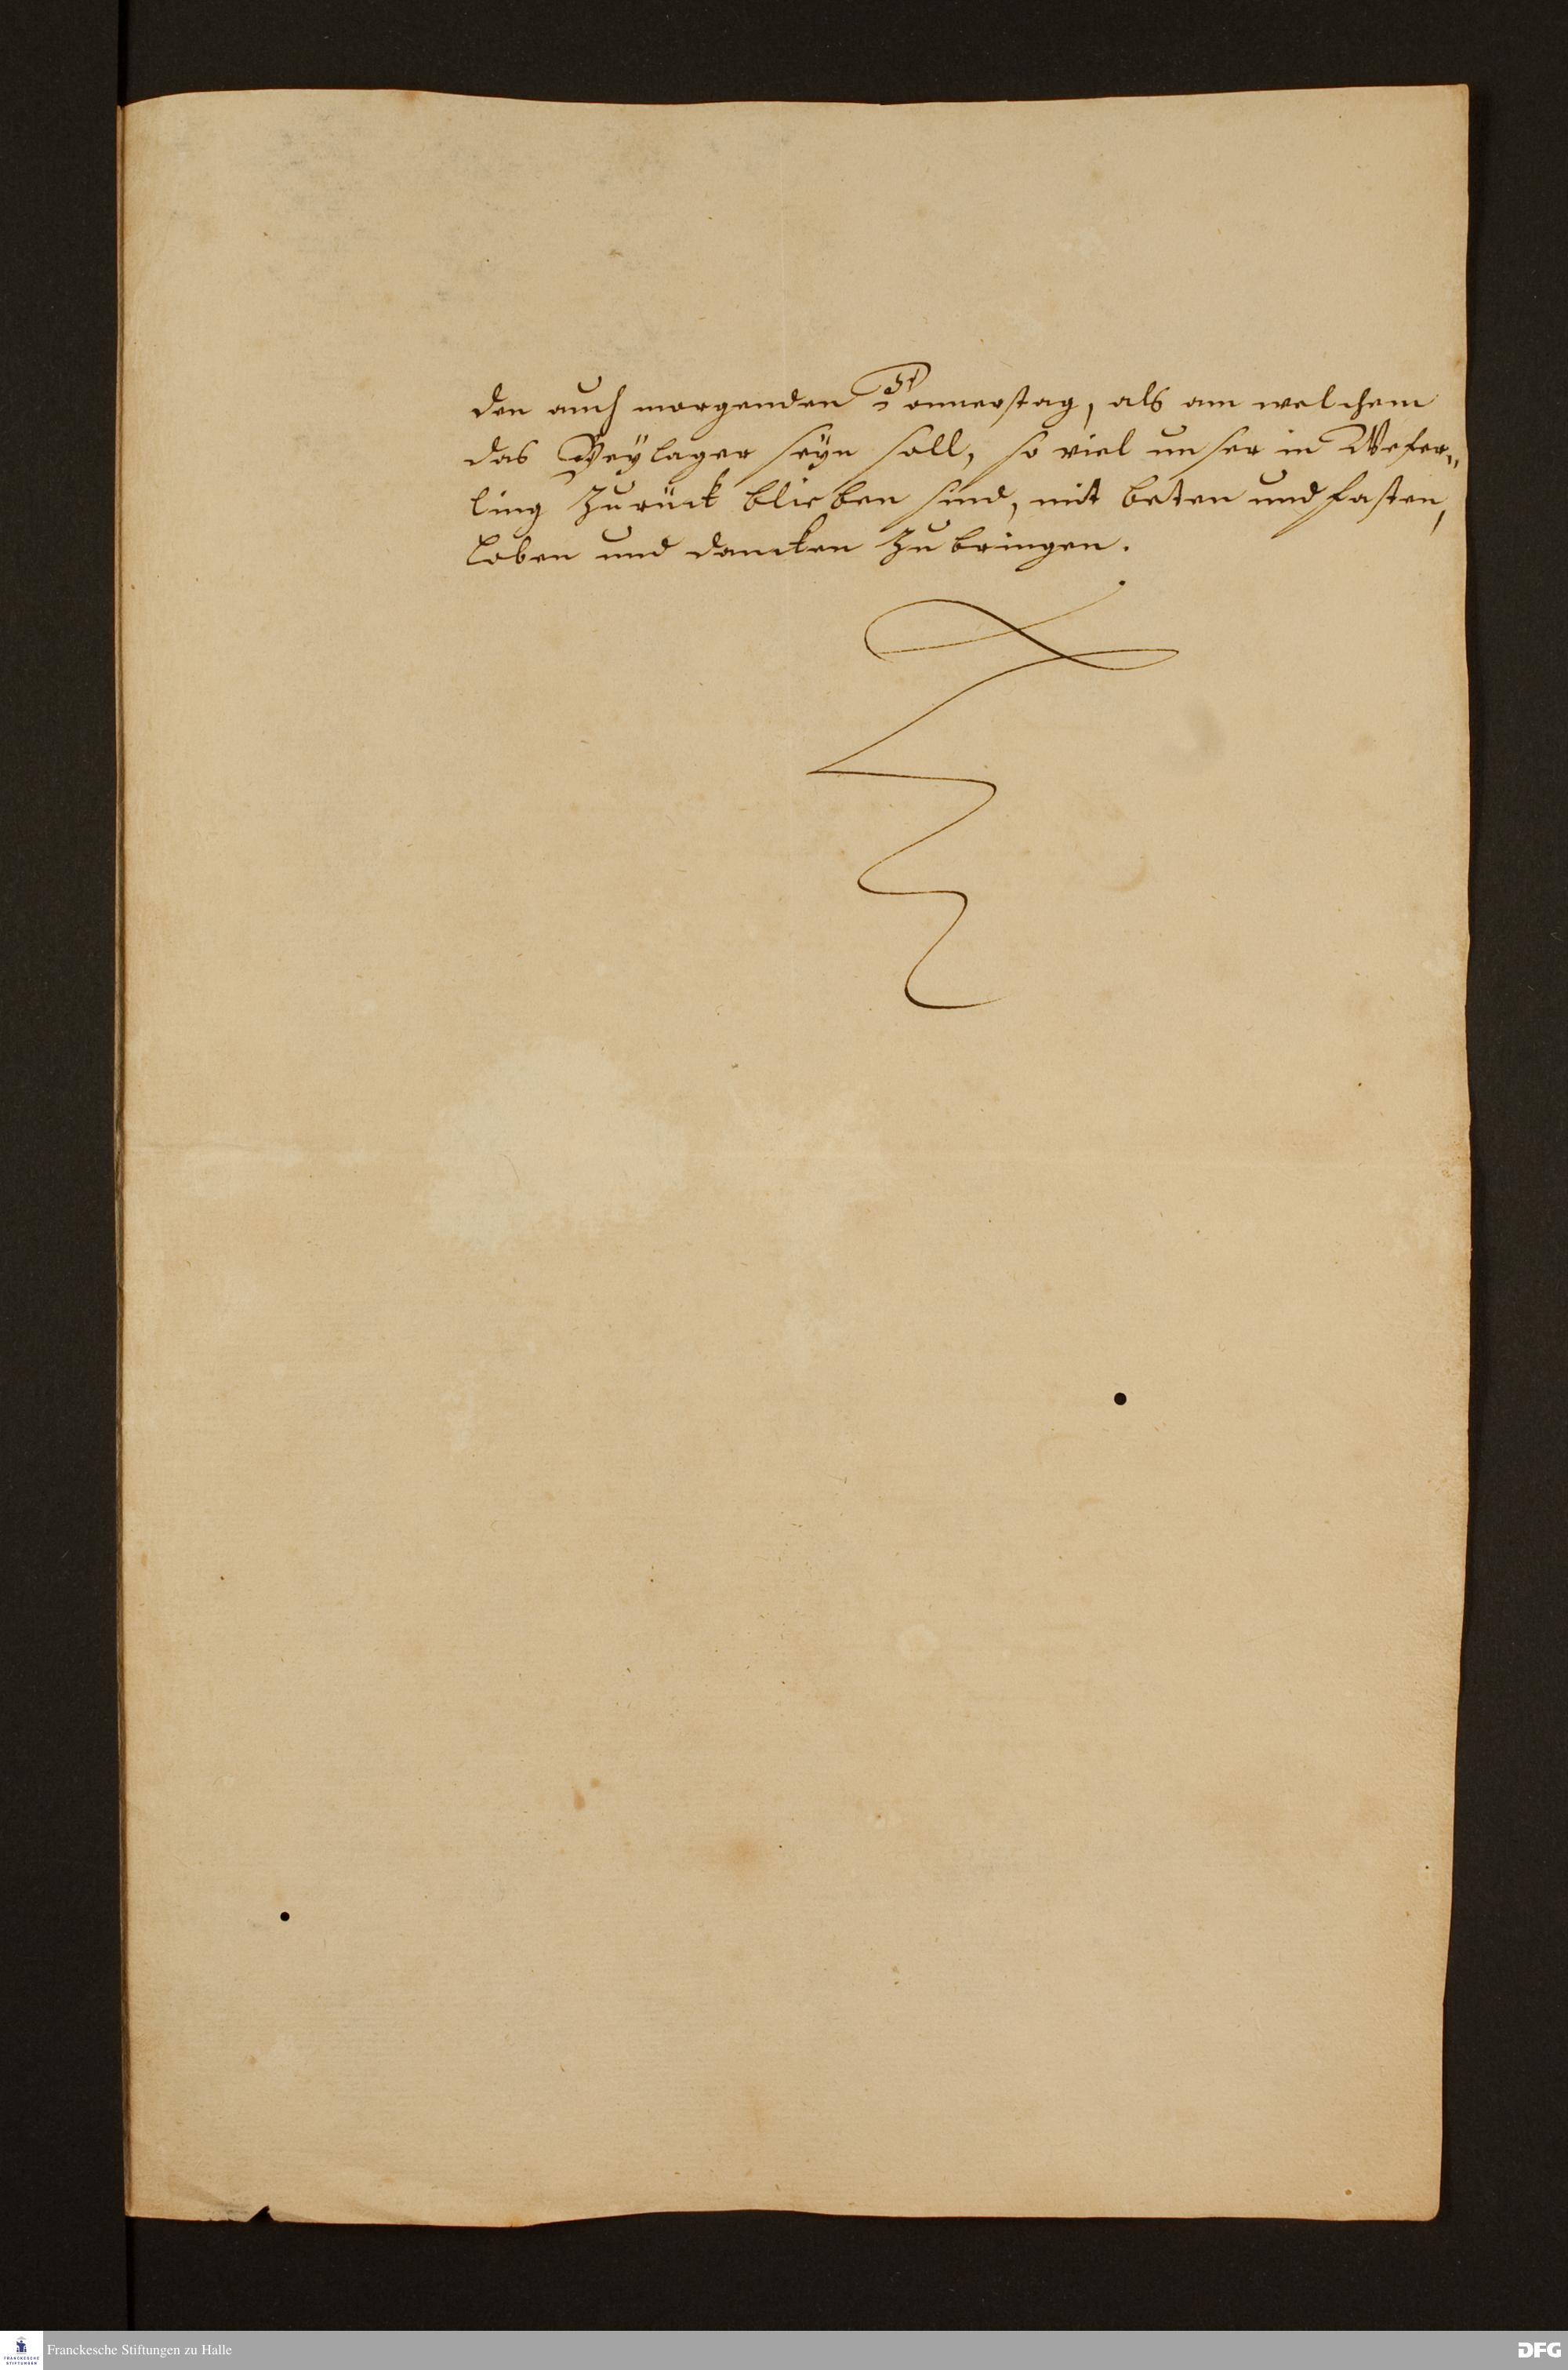 den auch morgenden Donnerstag, als am welchem
das Beÿlager seÿn soll, so viel unser in Wefer„
ling zurück blieben sind, mit beten und fasten,
loben und dancken zu bringen.
Franckesche Stiftungen zu Halle
FRANCKESCHE
STIFTUNGEN
DFG